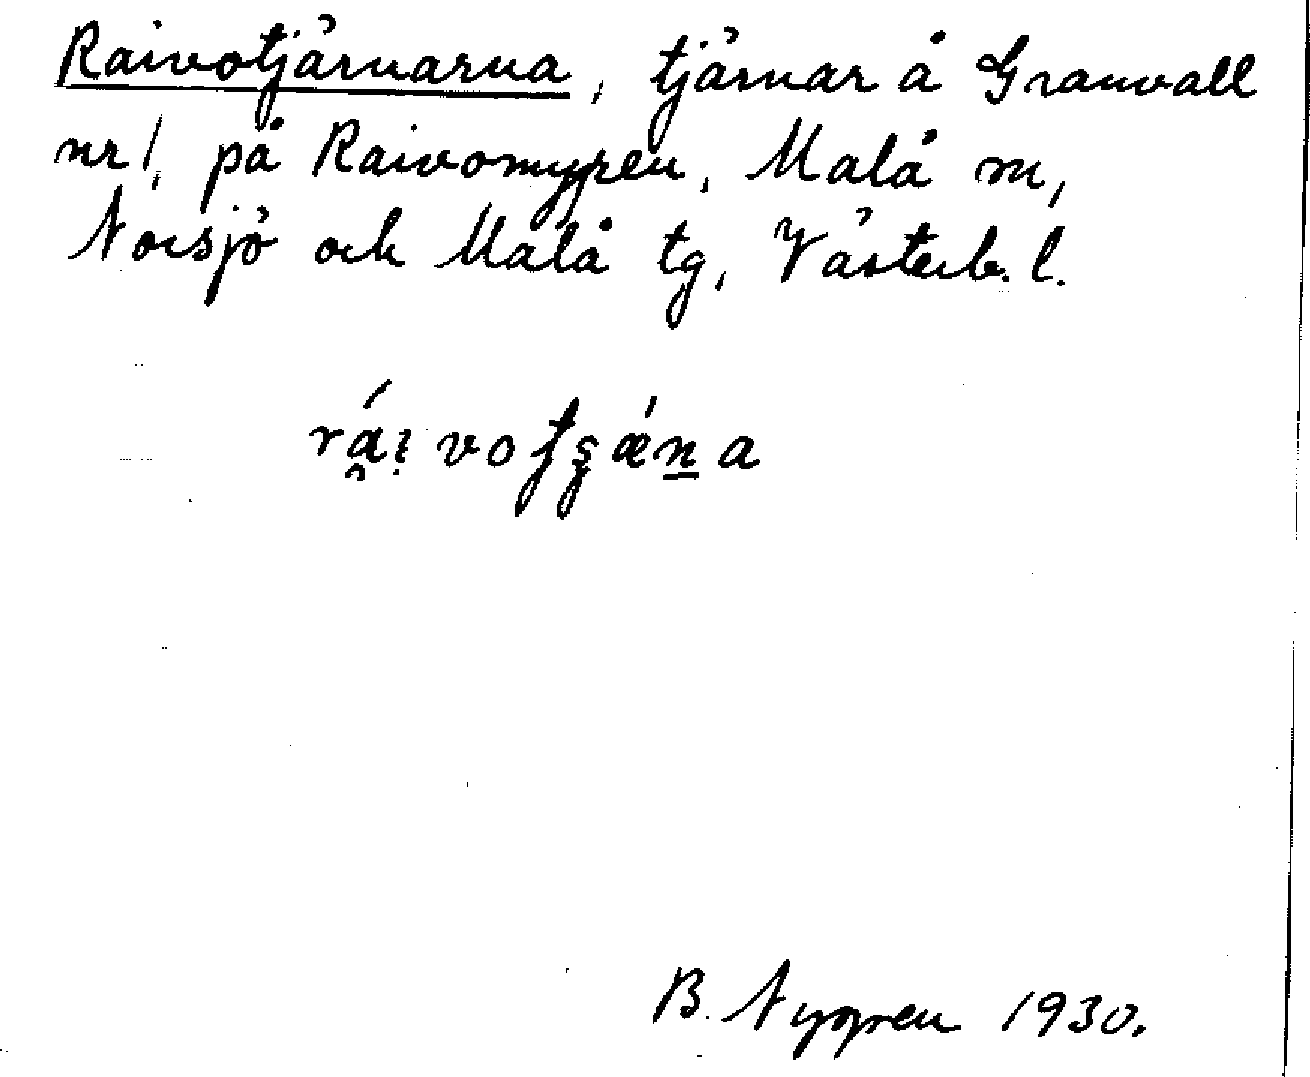 Raivotjärnarna, tjärnar å Granvall
nr 1, på Raivomyren, Malå sn,
Norsjö och Malå tg, Västerb. l.
rá̯i̯votʂǽn̲a
B. Nygren 1930.